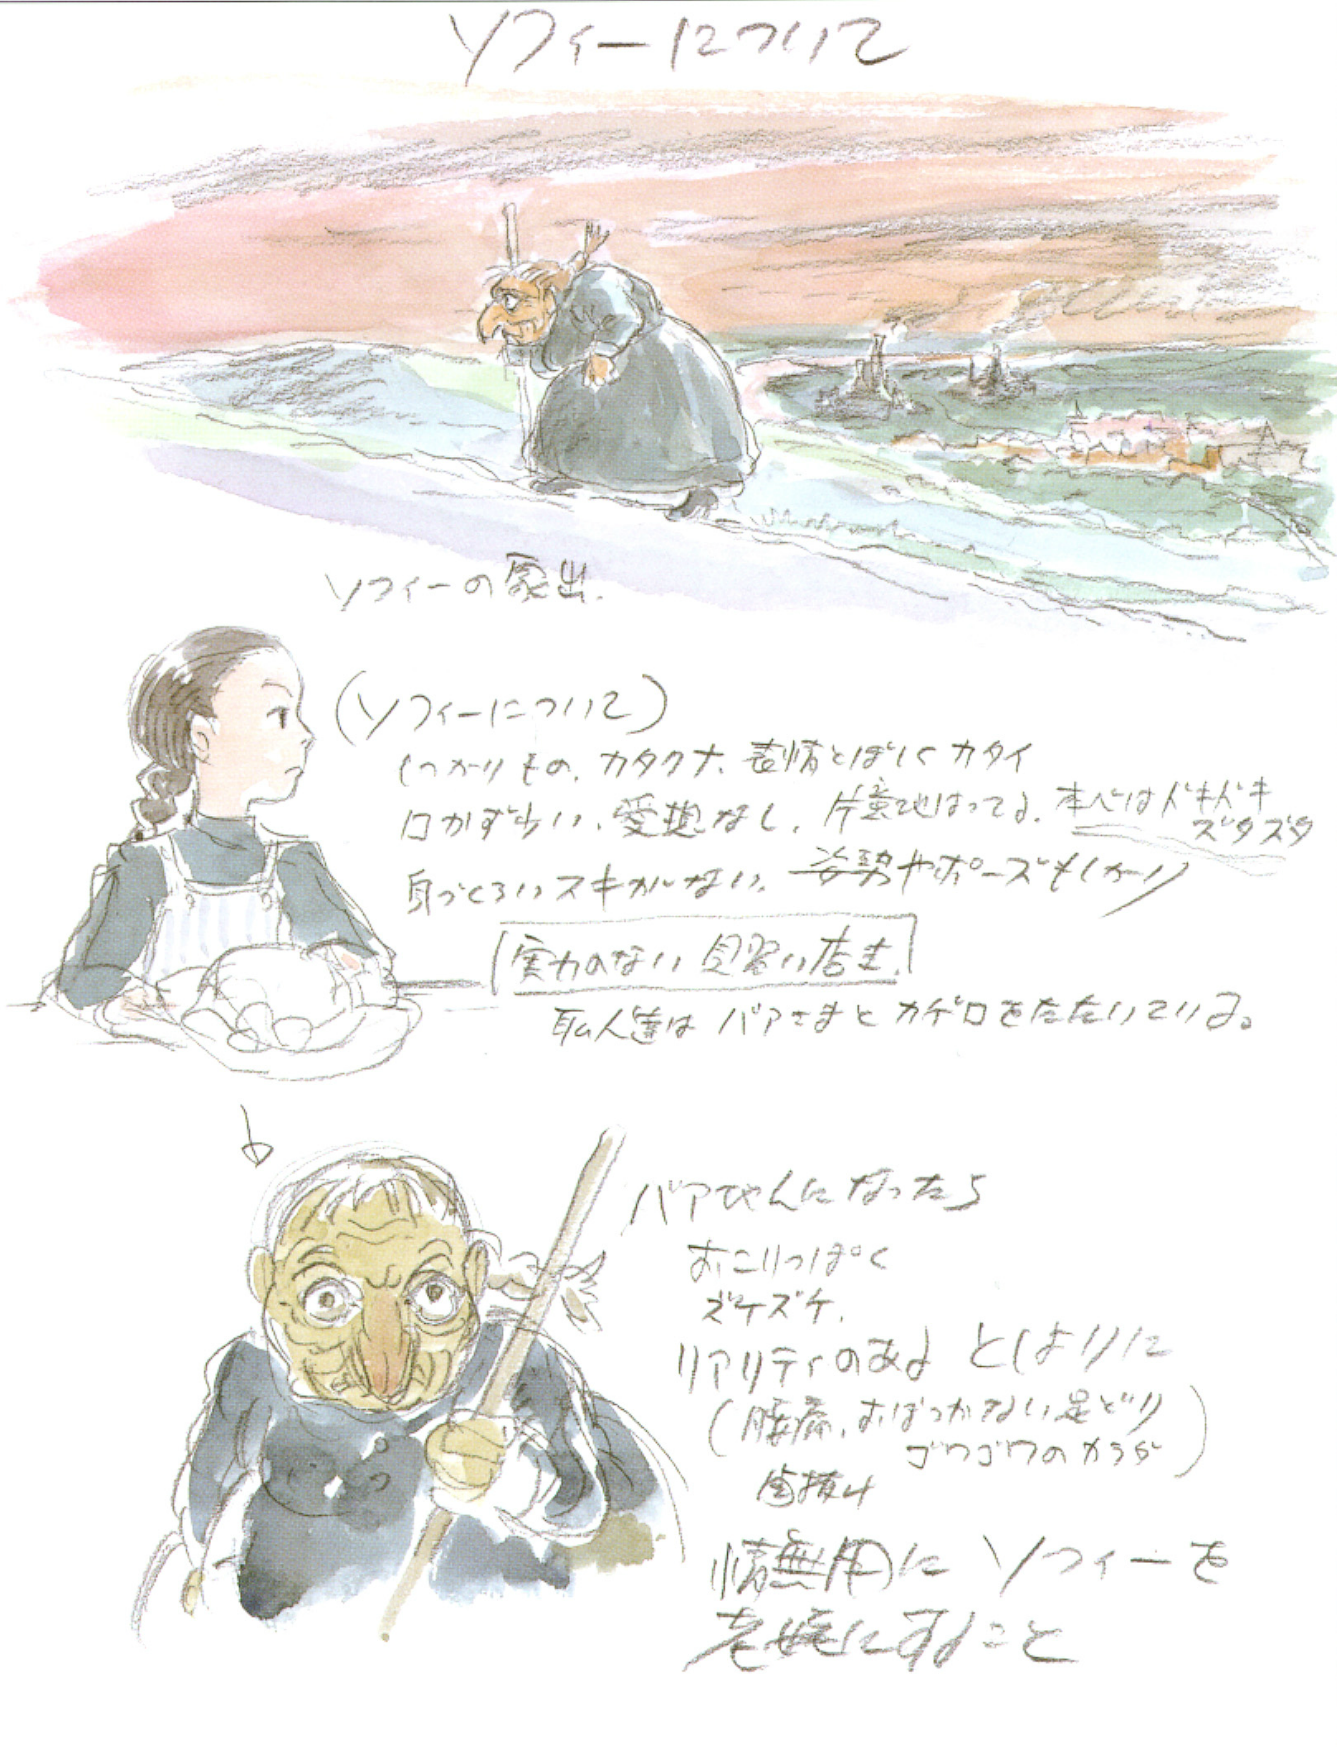 ソフィーについて
ソフィーの家出.
(ソフィーについて)
しっかりもの、カタクナ、表情とぼしくカタイ
口かず少い、愛想なし、片意地はってる。本心はドキドキ
ズタズタ
身づくろいスキがない、姿勢やポーズもしっかり
実力のない見習い店主.
職人達はバアさまとカゲ口をたたいている。
バアちゃんになったら
おこりっぽく
ズケズケ.
リアリティのあるとしよりに
(腰痛、おぼつかない足どり
ゴワゴワのカラダ)
歯抜け
情無用にソフィーを
老婆にすること